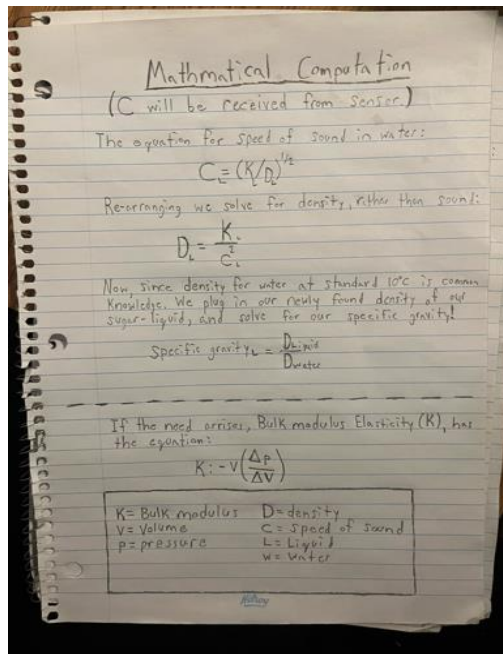 Mathmatical Computation
(C will be received from sensor.)
The equation for speed of sound in water:
C_L=(K_L/D_L)^1/2
Re-arranging we solve for density, rither than sound:
D_L = K_L / C_L^2
Now, since density for water at standard 10°C is common
Knowledge. We plug in our newly found dcsity of our
sugar-liquid, and solve for our specific gravity!
Specific gravity_L = D_Liquid / D_water
If the need arrises, Bulk modulus Elasticity (K), has
the equation:
K: -V(Δp/ΔV)
K= Bulk modulus D=density
V= Volume C = Speed of sound
P= pressure L= Liquid
W= Water
Hilroy